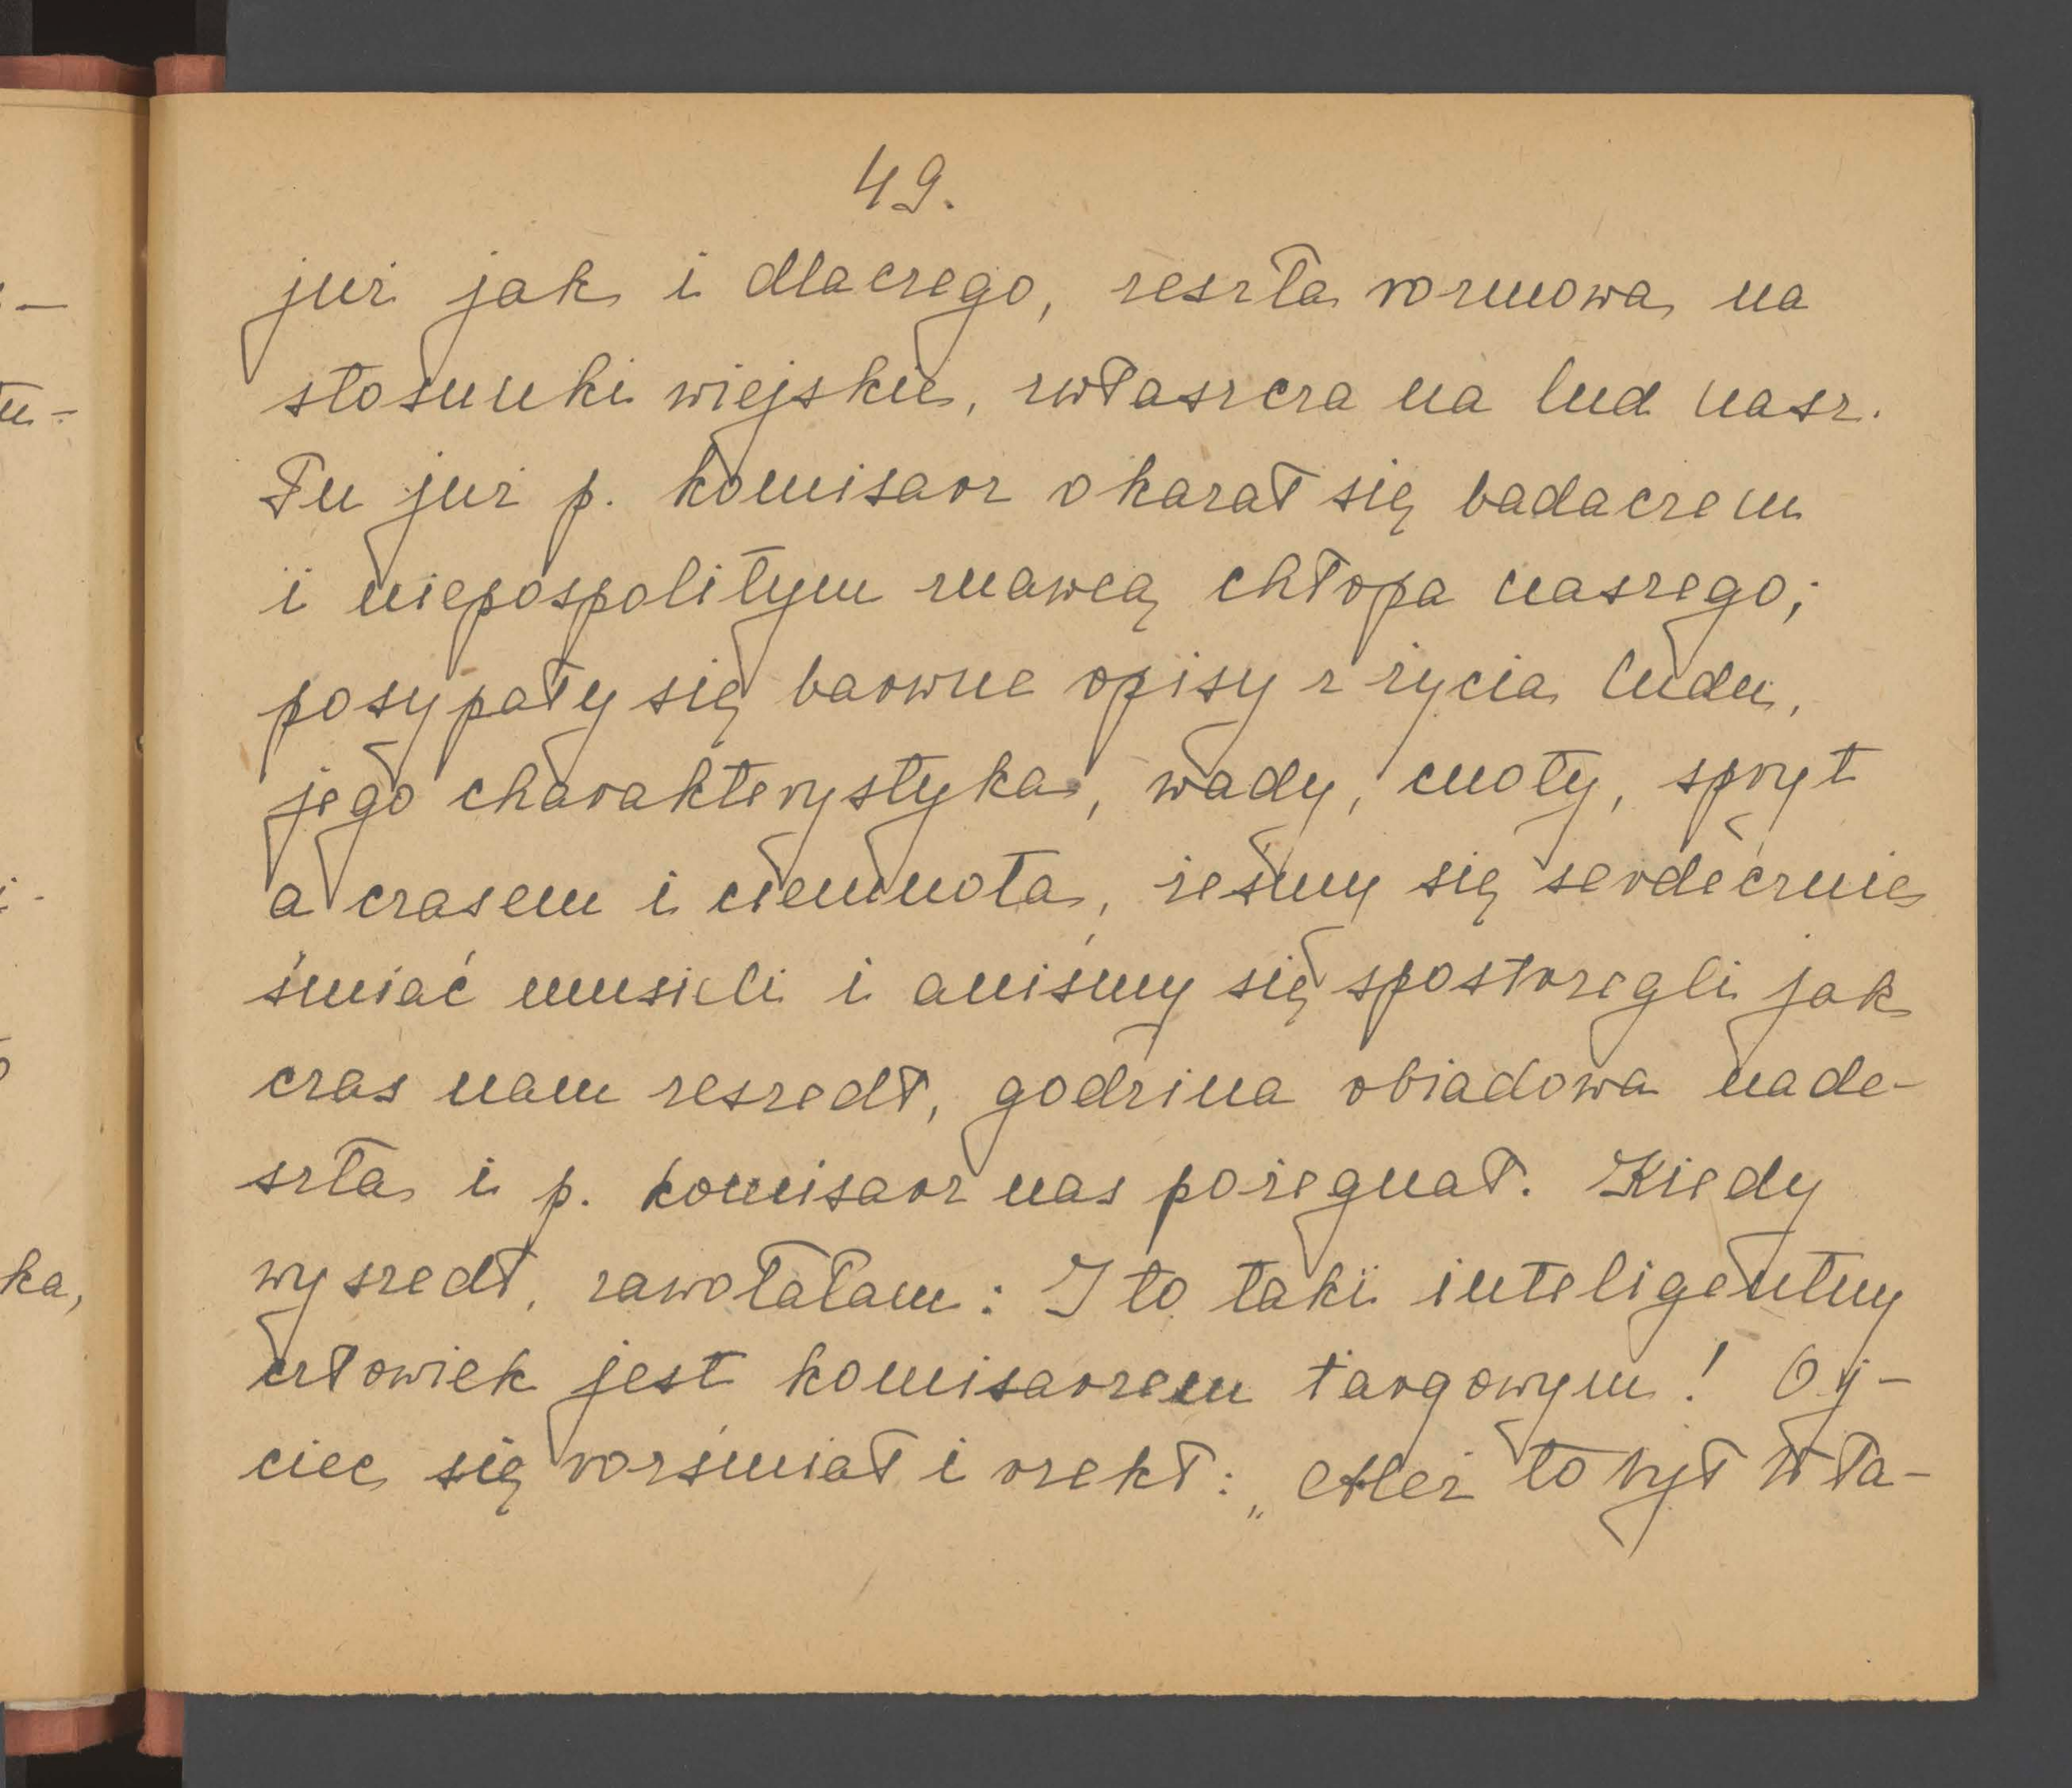 49.
już jak i dlaczego, zeszła rozmowa na
stosunki wiejskie, zwłaszcza na lud nasz.
Tu już p. komisarz okazał się badaczem
i niepospolitym znawcą chłopa naszego;
posypały się barwne opisy z życia ludu,
jego charakterystyka, wady, cnoty, spryt
a czasem i ciemnota, żeśmy się serdecznie
śmiać musieli i aniśmy się spostrzegli jak
czas nam zeszedł, godzina obiadowa nade-
szła i p. komisarz nas pożegnał. Kiedy
wyszedł, zawołałam: I to taki inteligentny
człowiek jest komisarzem targowym! Oj-
ciec się roześmiał i rzekł: „Ależ to był Wła-
ka,